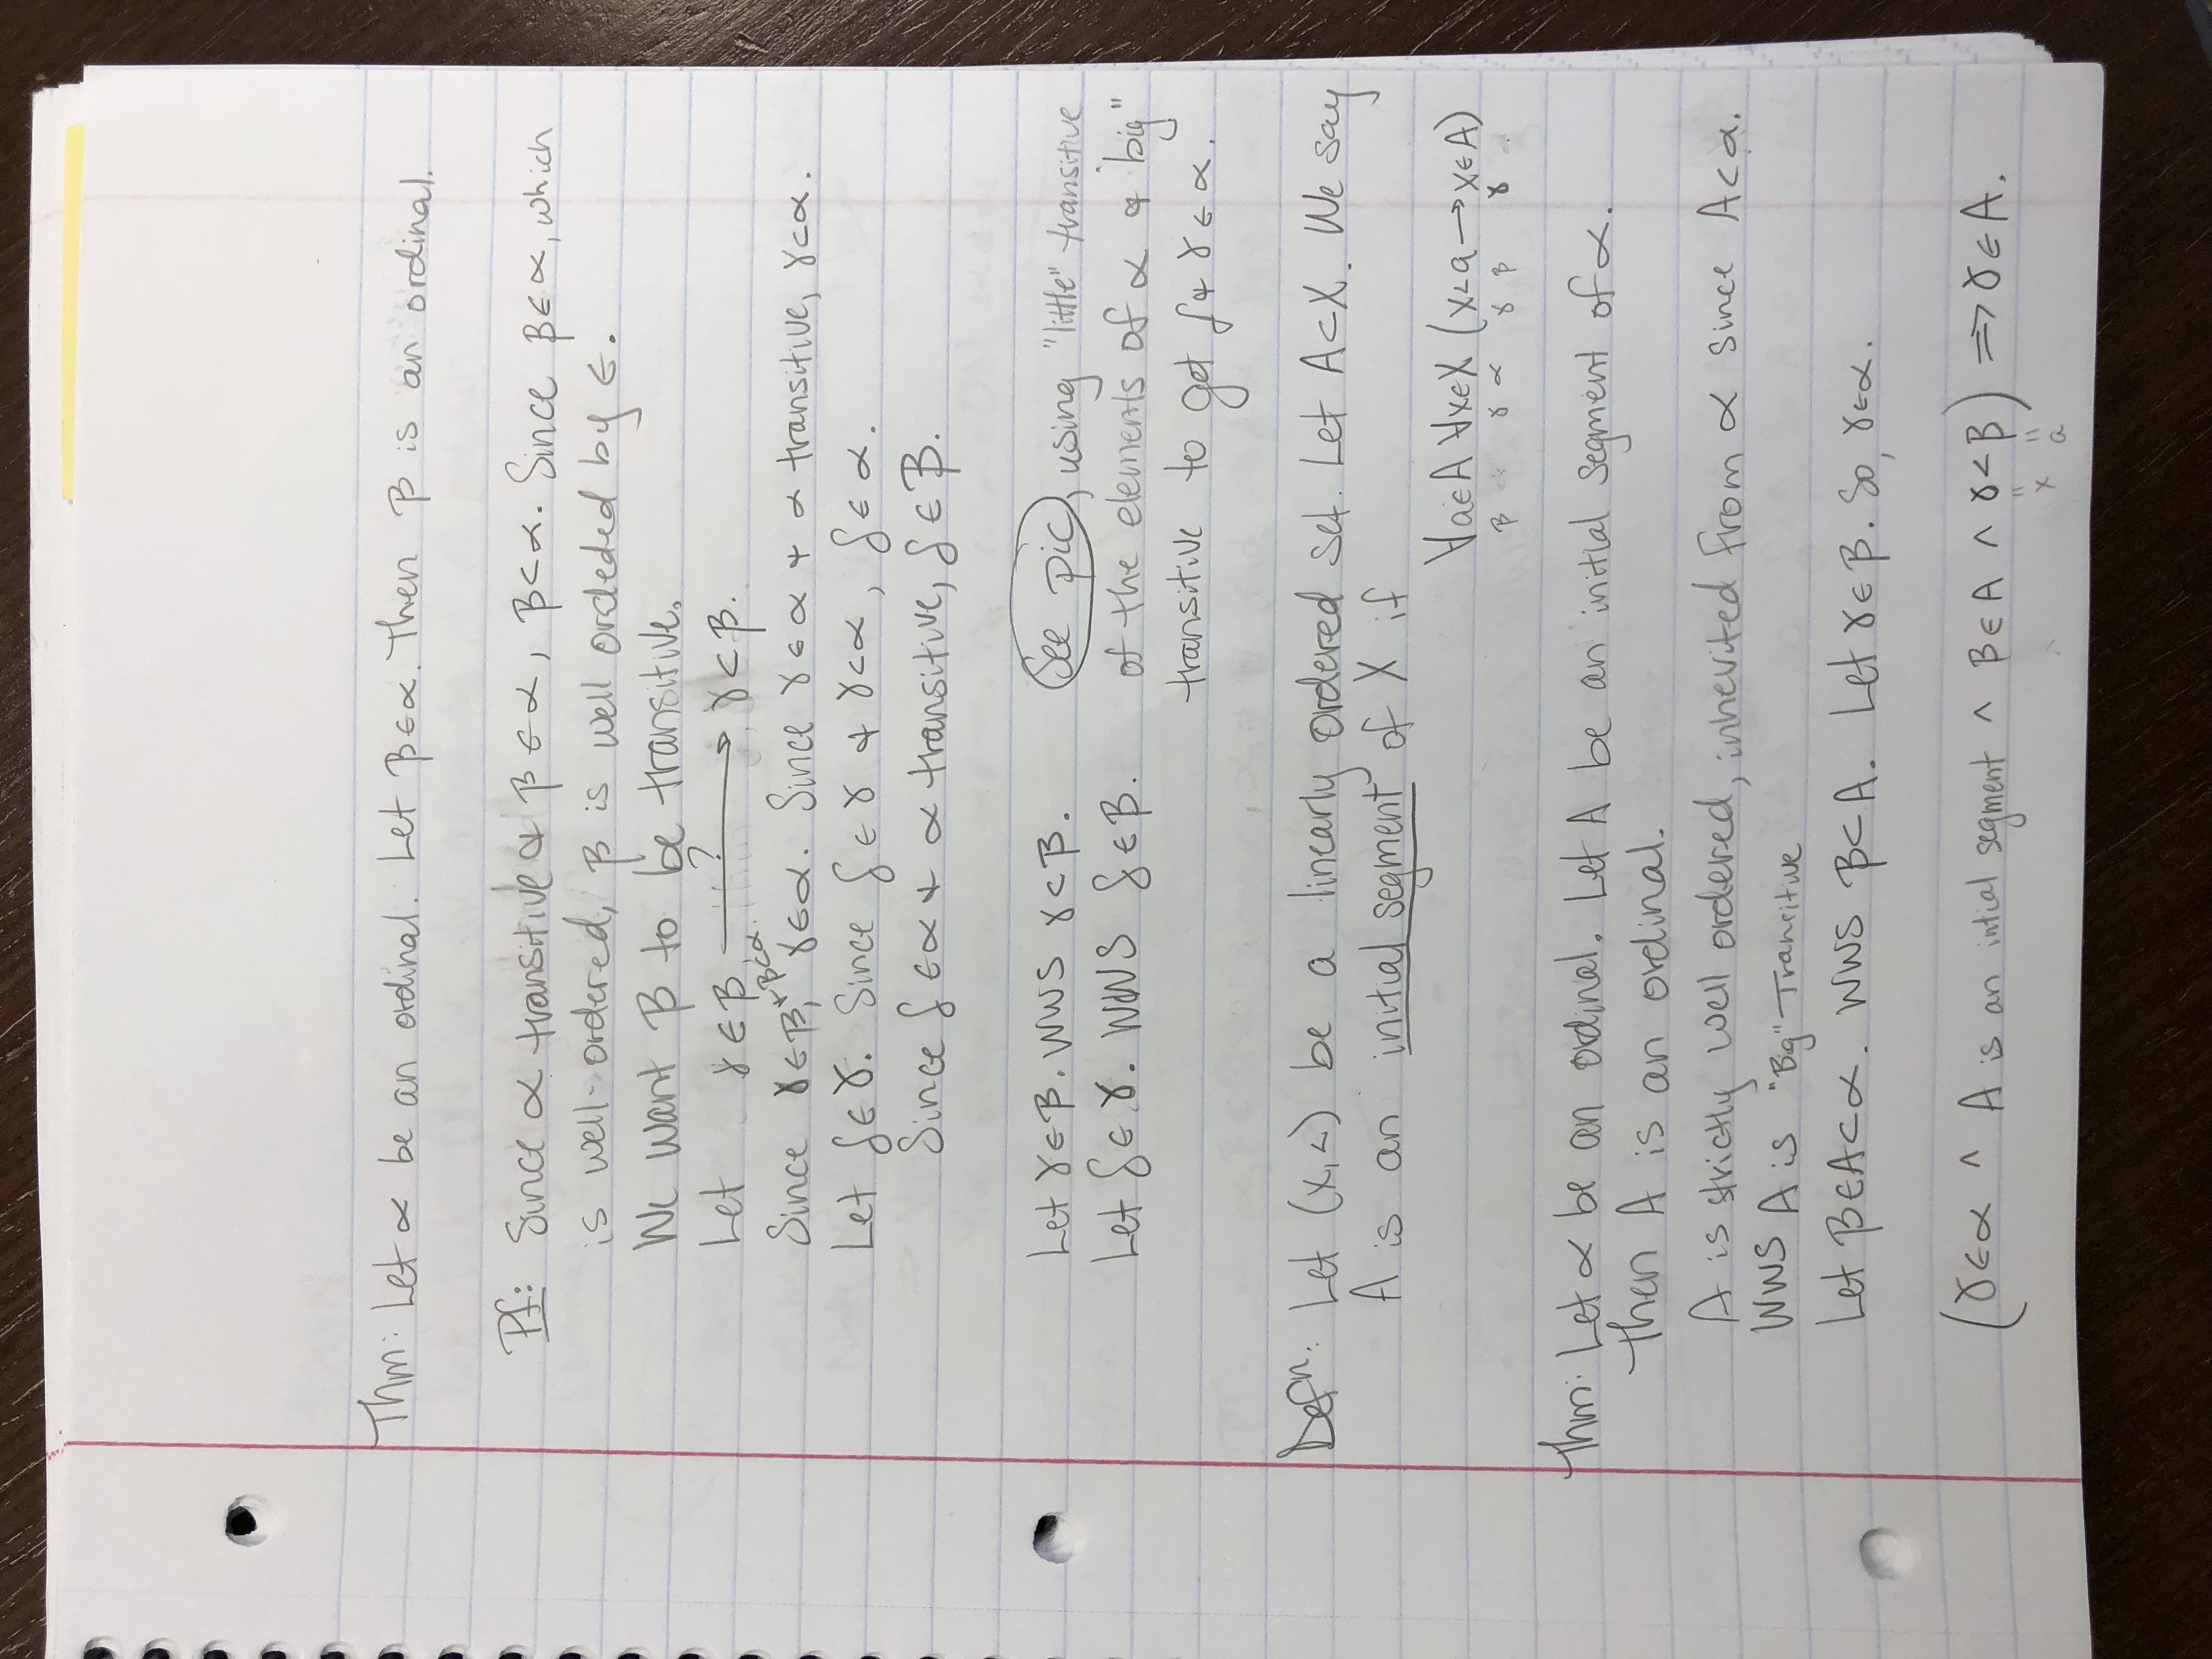 Thm: Let α be an ordinal. Let β∈α. Then β is an ordinal.
Pf: Since α transitive & β∈α, β⊂α. Since β∈α, which
is well-ordered, β is well ordeded by ∈.
We want β to be transitive.
Let γ∈β ⟶? γ⊂β.
Since γ∈β, + β⊂α. γ∈α. Since γ∈α + α transitive, γ⊂α.
Let δ∈γ. Since δ∈γ & γ⊂α, δ∈α.
Since δ∈α + α transitive, δ∈β.
Let γ∈β. WWS γ⊂β.
Let δ∈γ. WWS δ∈β.
See pic, using "little" transitive
of the elements of α & "big"
transitive to get δ & γ∈α.
Defn: Let (X,<) be a linearly ordered set. Let A⊂X. We say
A is an initial segment of X if
∀a∈A ∀x∈X (x<a→x∈A)
β γ α γ β γ
Thm: Let α be an ordinal. Let A be an initial segment of α.
Then A is an ordinal.
A is strictly well ordered, inherited from α since A⊂α.
WWS A is "Big" Transitive
Let β∈A⊂α. WWS β⊂A. Let γ∈β. So, γ∈α.
(γ∈α ∧ A is an intial segment ∧ β∈A ∧ γ<β) ⇒ γ∈A.
" "
x a